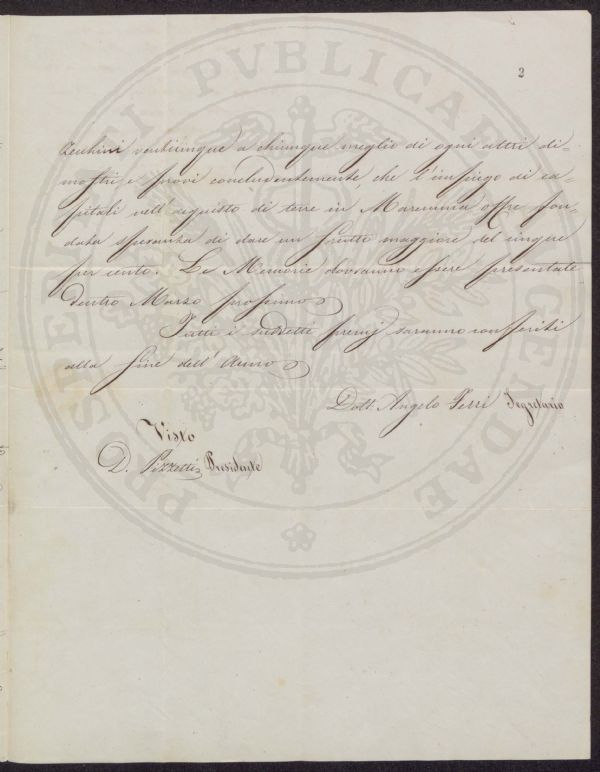 2
Zecchini venticinque a chiunque meglio di ogni altri di=
mostri, e provi concludentemente, che l'impiego di ca=
pitali nell'acquisto di terre in Maremma offre fon=
data speranza di dare un frutto maggiore del cinque
per cento. Le Memorie dovranno essere presentate
dentro Marzo prossimo
Tutti i suddetti premj saranno conferiti
alla fine dell'Anno
Dott. Angelo Ferri Segretario
Visto
D. Pizzetti Presidente
PROSPERITATI PVBLICAE AVGENDAE